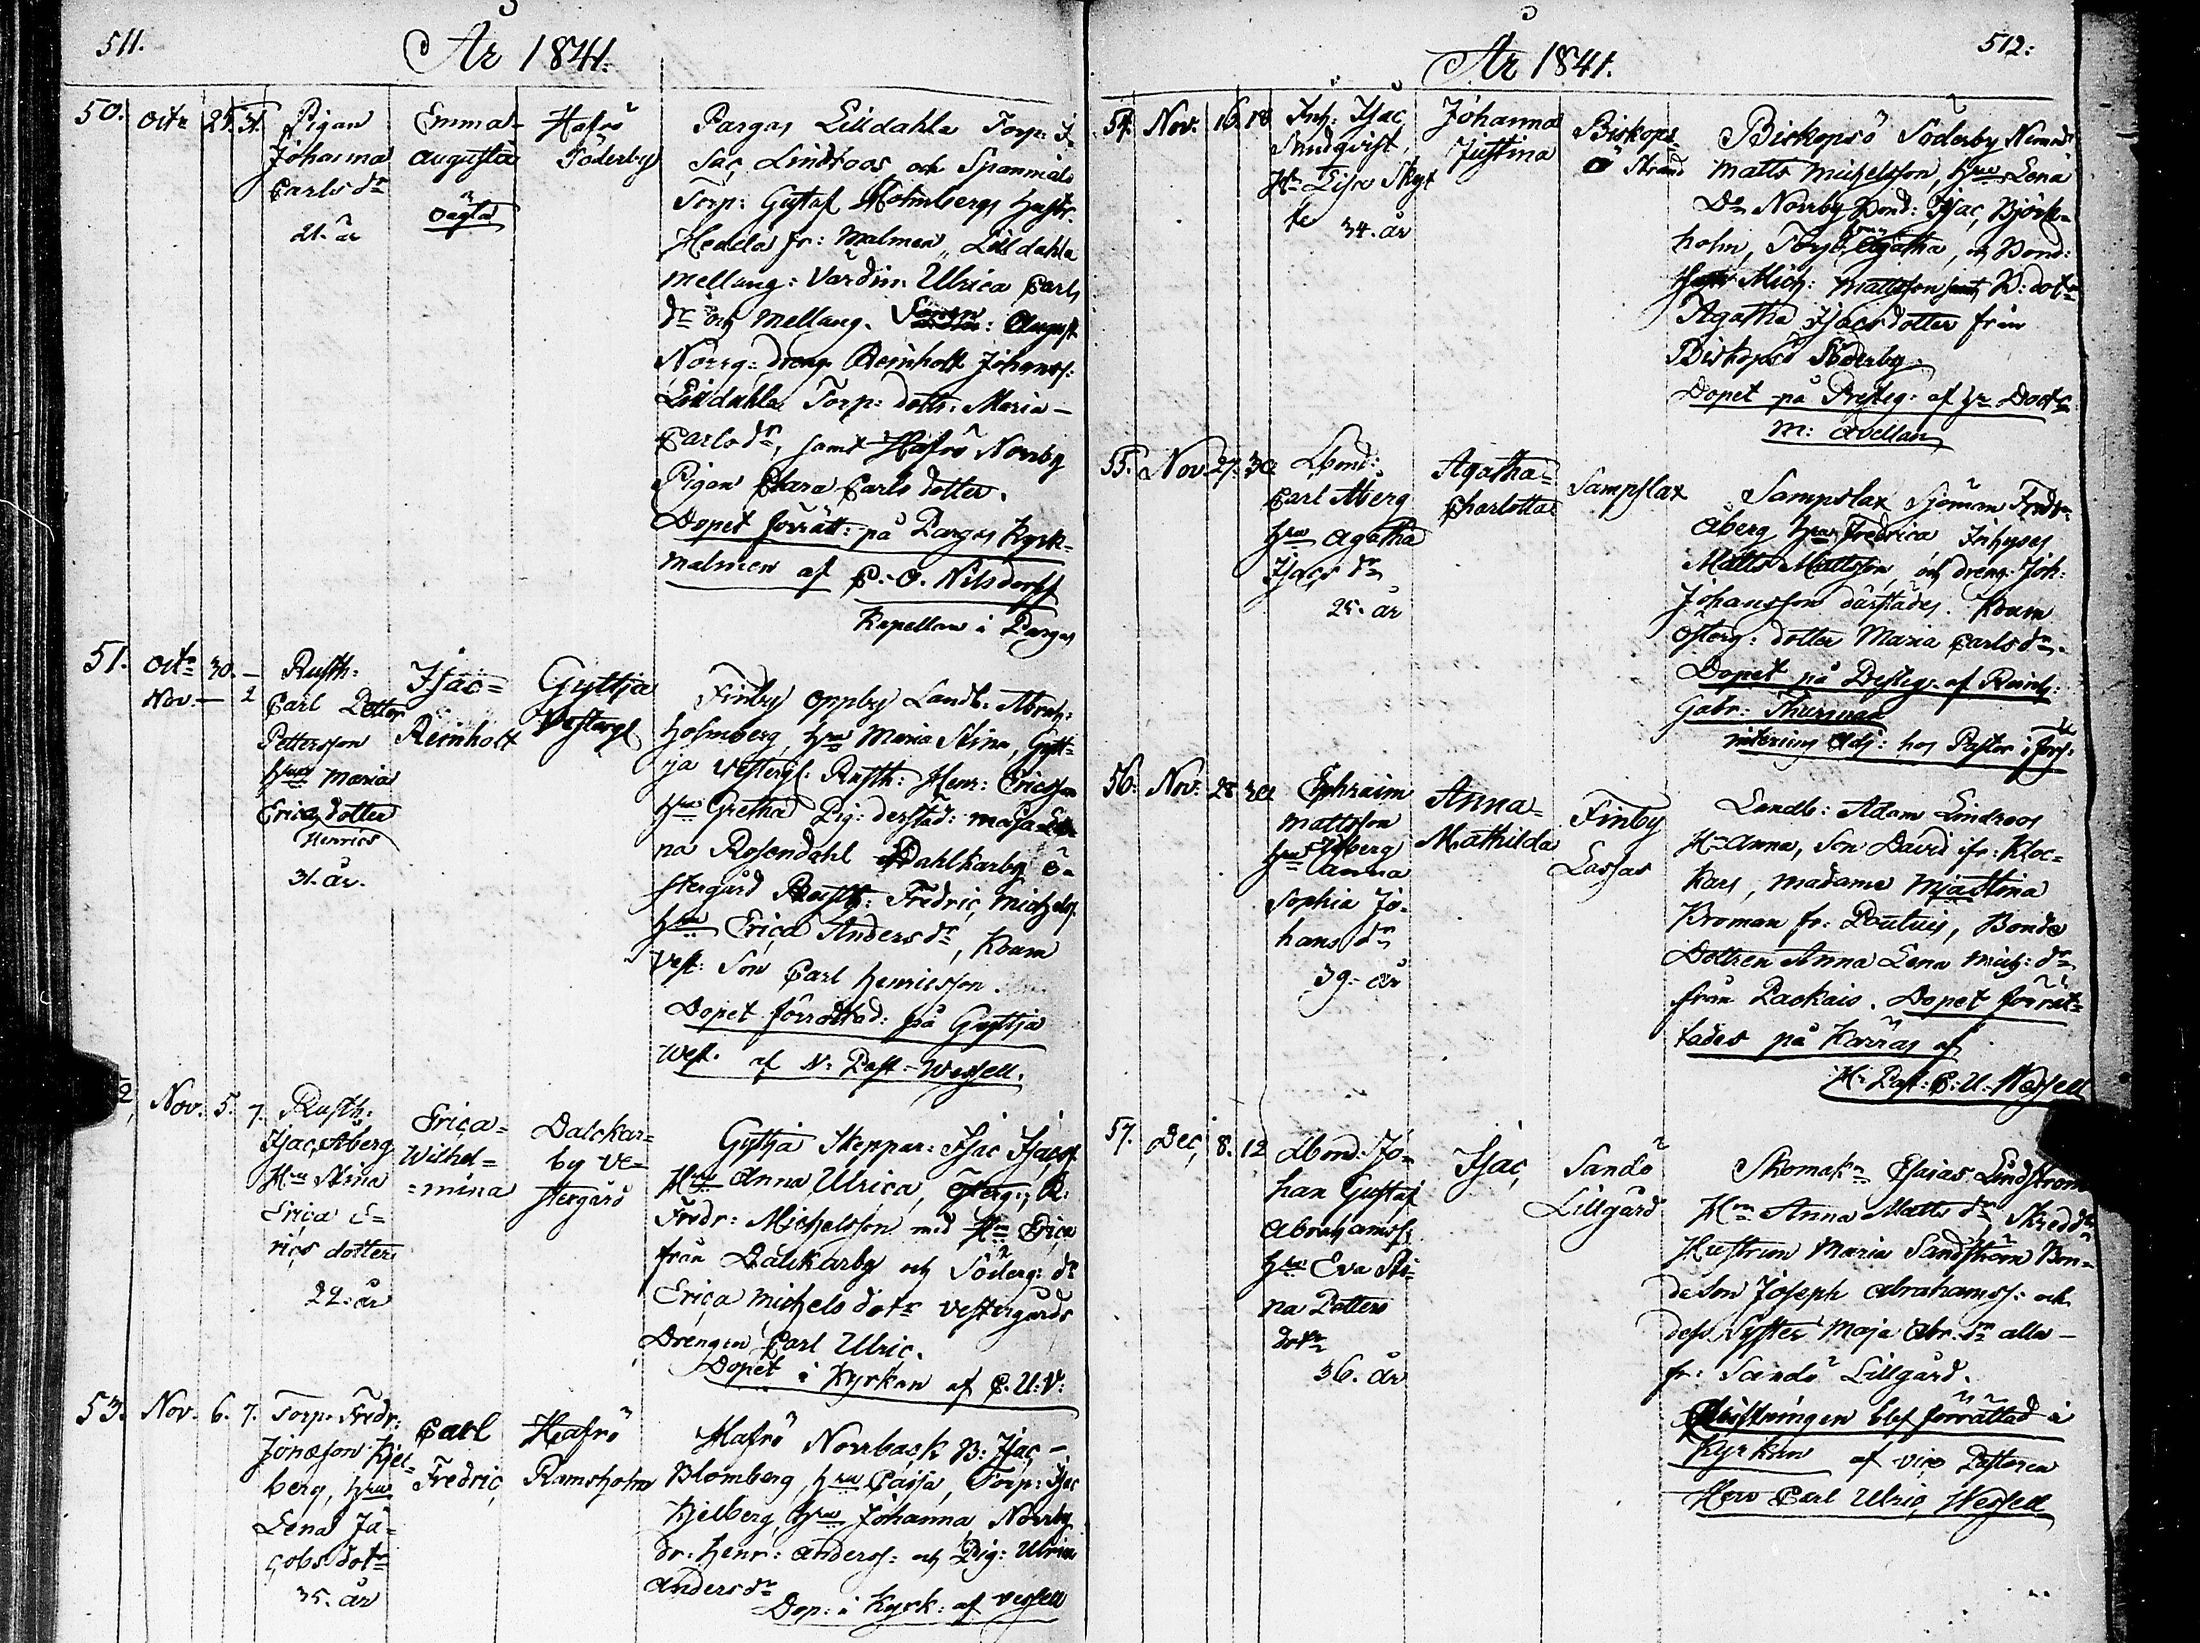 511.
År 1841.
50. Octr 25. 31.
Pigan
Johanna
Carls dr
21. år
Emma
Augusta
oägta
Hafrö
Söderby
Pargas Lilldahla Torp: I-
sac Lindroos och Spanmäls
Torp: Gustaf Holmbergs hustr:
Hedda fr: Malmen, Lilldahla
Mellang: Värdin Ulrica Carls
dr och Mellang. Sonen: August
Norrg: dreng Reinholt Johanss:
Lilldahla Torp: dottr: Maria
Carls dr, samt Hafrö Norrby
Pigan Clara Carls dotter.
Dopet förrätt: på Pargas Kyrk-
malmen af C. O. Nilsdorff
Kapellan i Pargas
51. Octr 30. -
Nov. - 2
Rusth:
Carl Petter
Pettersson
hru Maria
Erics dotter
Henrics
31. år.
Isac=
Reinholt
Gyttja
Vesterg
Finby Oppby Landb: Abrah:
Holmberg, hru Maria Stina, Gytt-
ja Vesterg: Rusth: Henr: Ericsson
hru Gretha Pig: derstäd: Maja
na Rosendahl Dahlkarby Ö-
stergård Rusth: Fredric Michels:
hru Erica Anders dr, Koum
Vest: Son Carl Henricsson.
Dopet förrättad: på Gyttja
West. af V: Past. Wessell.
2 Nov. 5. 7.
Rusth:
Isac Åberg
Hru Stina
Erica E-
rics dotter
22. år
Erica=
Wilhel=
=mina
Dalckar=
by Ve=
stergård
Gyttja Skeppar: Isac Isacss
Hru Anna Ulrica, Österg: R:
Fredr: Michelsson med Hru Erica
från Dalckarby och Söderg: dr
Erica Michels dotr Vestergårds
Drengen Carl Ulric.
Dopet i Kyrkan af C. U: V:
53. Nov. 6. 7.
Torp. Fredr:
Jonasson Kjel-
berg, hru
Lena Ja-
cobs dotr
35. år
Carl
Fredric
Hafrö
Ramsholm
Hafrö Norrback B: Isac
Blomberg, hru Cajsa, Torp: Isac
Kjelberg, hru Johanna, Norrby
dr: Henr: Anderss: och Pig: Ulrica
Anders dr
Dop: i Kyrk: af Wessell
År 1841.
512:
54. Nov. 16. 18
Inh: Isac
Sundqvist,
Hr Lisa Skyt
te 34. år
Johanna
Justina
Biskops-
ö Strand
Biskopsö Söderby Nemnd:
Matts Michelsson, hru Lena
Dr Norrby Bond: Isac Björk-
holm, Torp: Agatha, och Bond:
Mich: Mattsson samt B: dotr
Agatha Isacsdotter från
Biskopsö Söderby.
Dopet på Prestg: af Hr Doct
M: Avellan
55. Nov. 27. 30
Lbond:
Carl Åberg
hru Agatha
Isacs dr
25. år
Agatha=
Charlotta
Sampslax
Sampslax Sjöman Fredr:
Åberg hru Fredrica Inhyses
Matts Mattsson, och dreng: Joh:
Johansson därstädes. Koum
Österg: dotter Maria Carls dr.
Dopet på Prestg. af Reinh:
Gabr: Thurman
interims Adj: hos Pastor
56. Nov: 28 30
Ephraim
Mattsson
Isberg
hru Anna
Sophia Jo-
hans dr
39. år
Anna=
Mathilda
Finby
Lassas
Landb: Adam Lindroos
Hr Anna, Son David ifr: Kloc-
kars, Madame Mjastina
Broman fr: Poutuis, Bonde
Dottren Anna Lena Mich: dr
från Packais. Dopet förrät-
tades på Karras af
Hr Past: C: U. Wessell
57. Dec, 8. 12
Lbond: Jo-
han Gustaf
Abrahamss:
hru Eva Sti-
na Petters
dotr
36. år
Isac,
Sandö
Lillgård
Skomakr Esaias Lindstrom
Hru Anna Matts dr, Skreddr
Hustrun Maria Sandström Bon-
de Son Joseph Abrahamss: och
dess Syster Maja Abr. dr alla -
fr: Sandö Lillgård.
Christningen blef förrättad i
Kyrkan af vice Pastoren
Herr Carl Ulric Wessell